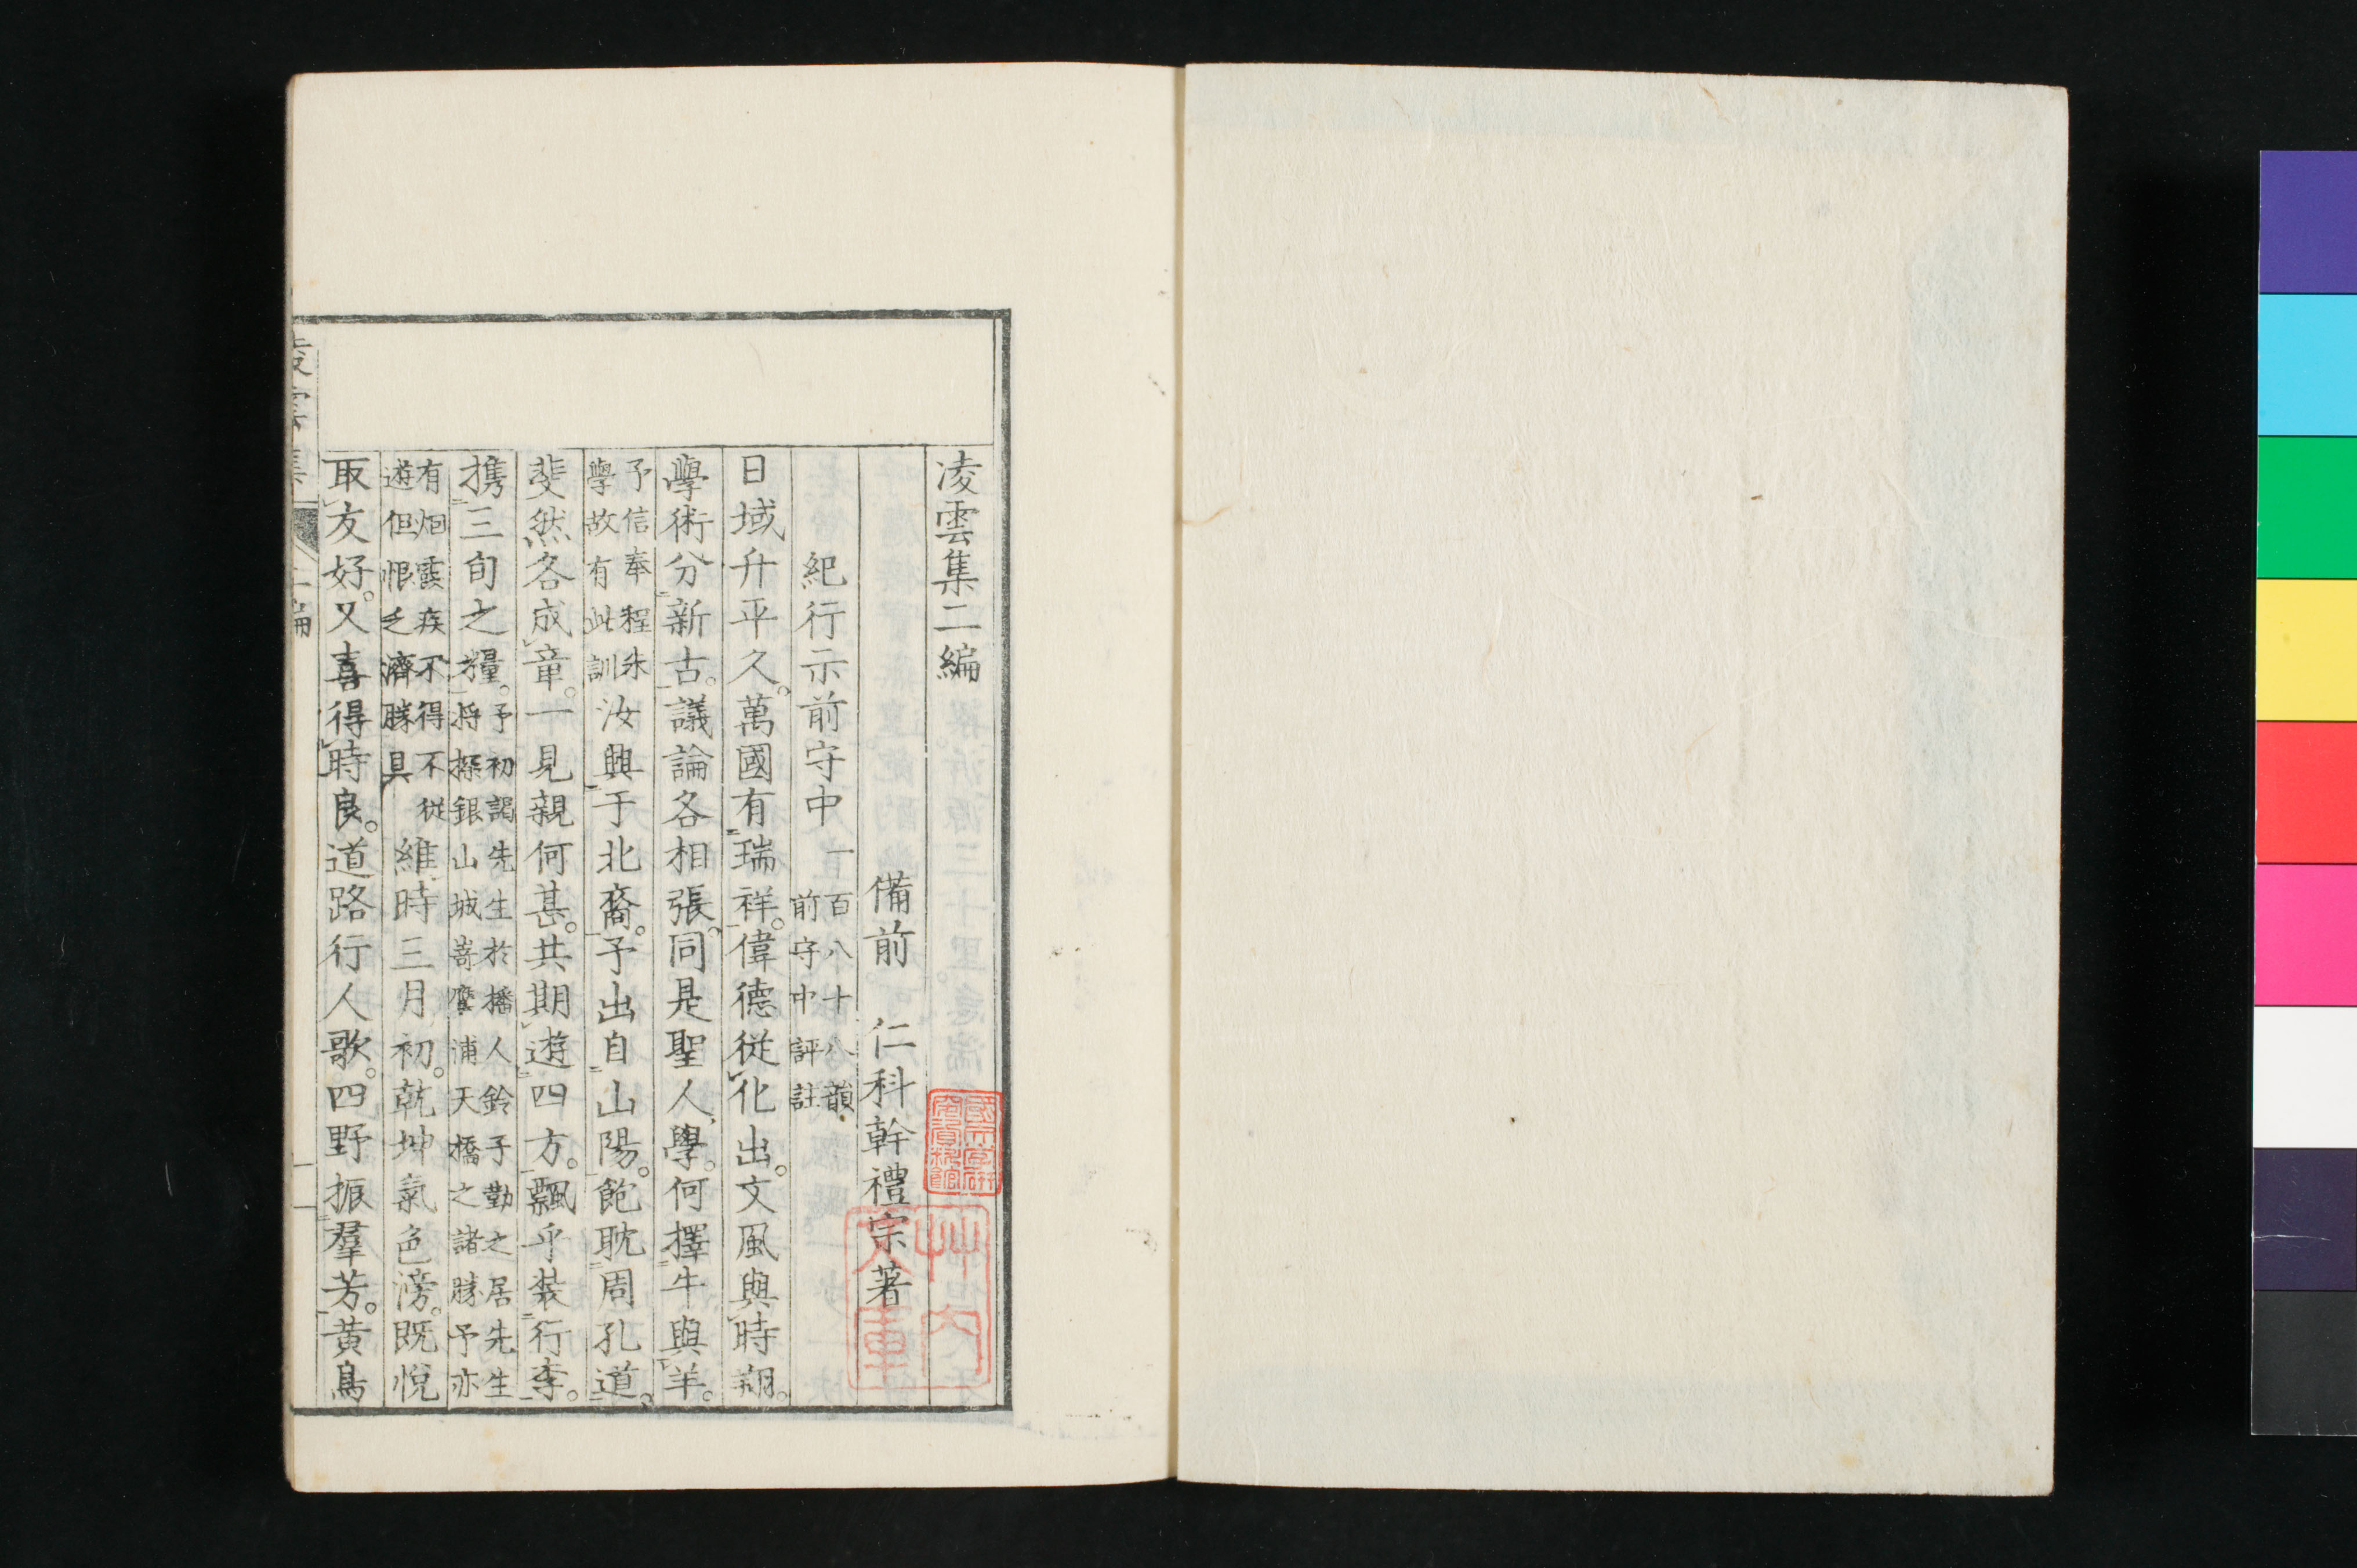 凌雲集二編
備前　仁科幹禮宗著
紀行示前守中　一百八十八韻　前守中評註
日域升平久。萬國有瑞祥。偉德從化出。文風與時翔。
學術分新古。議論各相張。同是聖人學。何擇牛與羊。
予信奉程朱
學故有此訓
汝興于北裔。予出自山陽。飽耽周孔道。
斐然各成章。一見親何甚。共期遊四方。飄乎裝行李。
携三旬之糧。
予初謁先生於播人鈴子勤之居先生
将探銀山城嵜鷹浦天橋之諸勝予亦
有烟霞疾不得不從
遊但恨乏濟勝具
維時三月初。乾坤氣色滂。既悅
取友好。又喜得時良。道路行人歌。四野振羣芳。黃鳥
二編
一
艸
文
庫